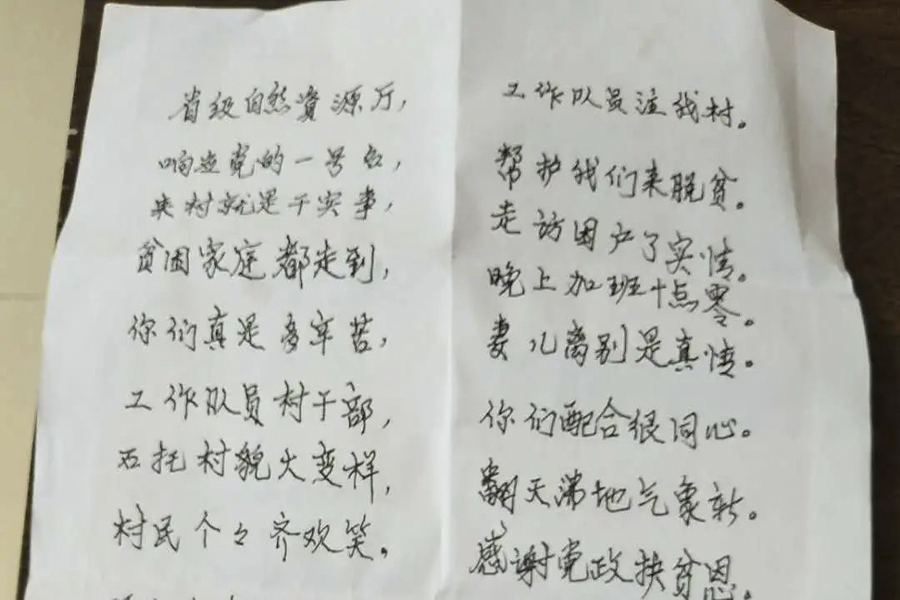 省级自然資源厅, 工作队员注我村。
响应党的一号召, 帮护我们来脱贫。
来村就是干实事, 走访困户了实情。
贫困家庭都走到, 晚上加班十点零。
你们真是多辛苦, 妻儿离别是真情。
工作队员村干部, 你们配合很同心。
石托村貌大变样, 翻天地气象新。
村民个々齐欢笑。 感谢党政扶贫恩。